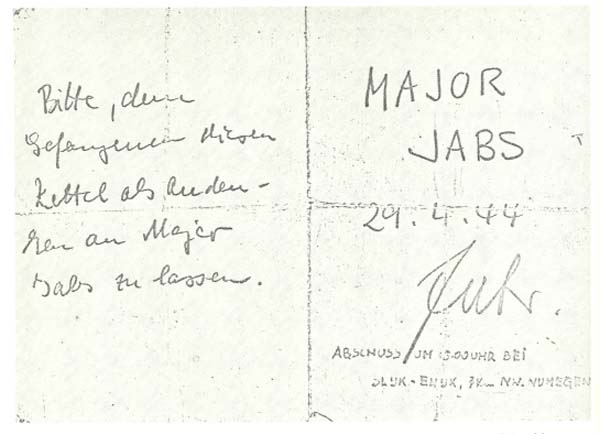 Bitte, dem
Gefangenen diesen
Zettel als Anden-
ken an Major
Jabs zu lassen.
MAJOR
JABS
29.4.44
ABSCHUSS UM 1300 UHR BEI
7 Km NW. NIJMEGEN